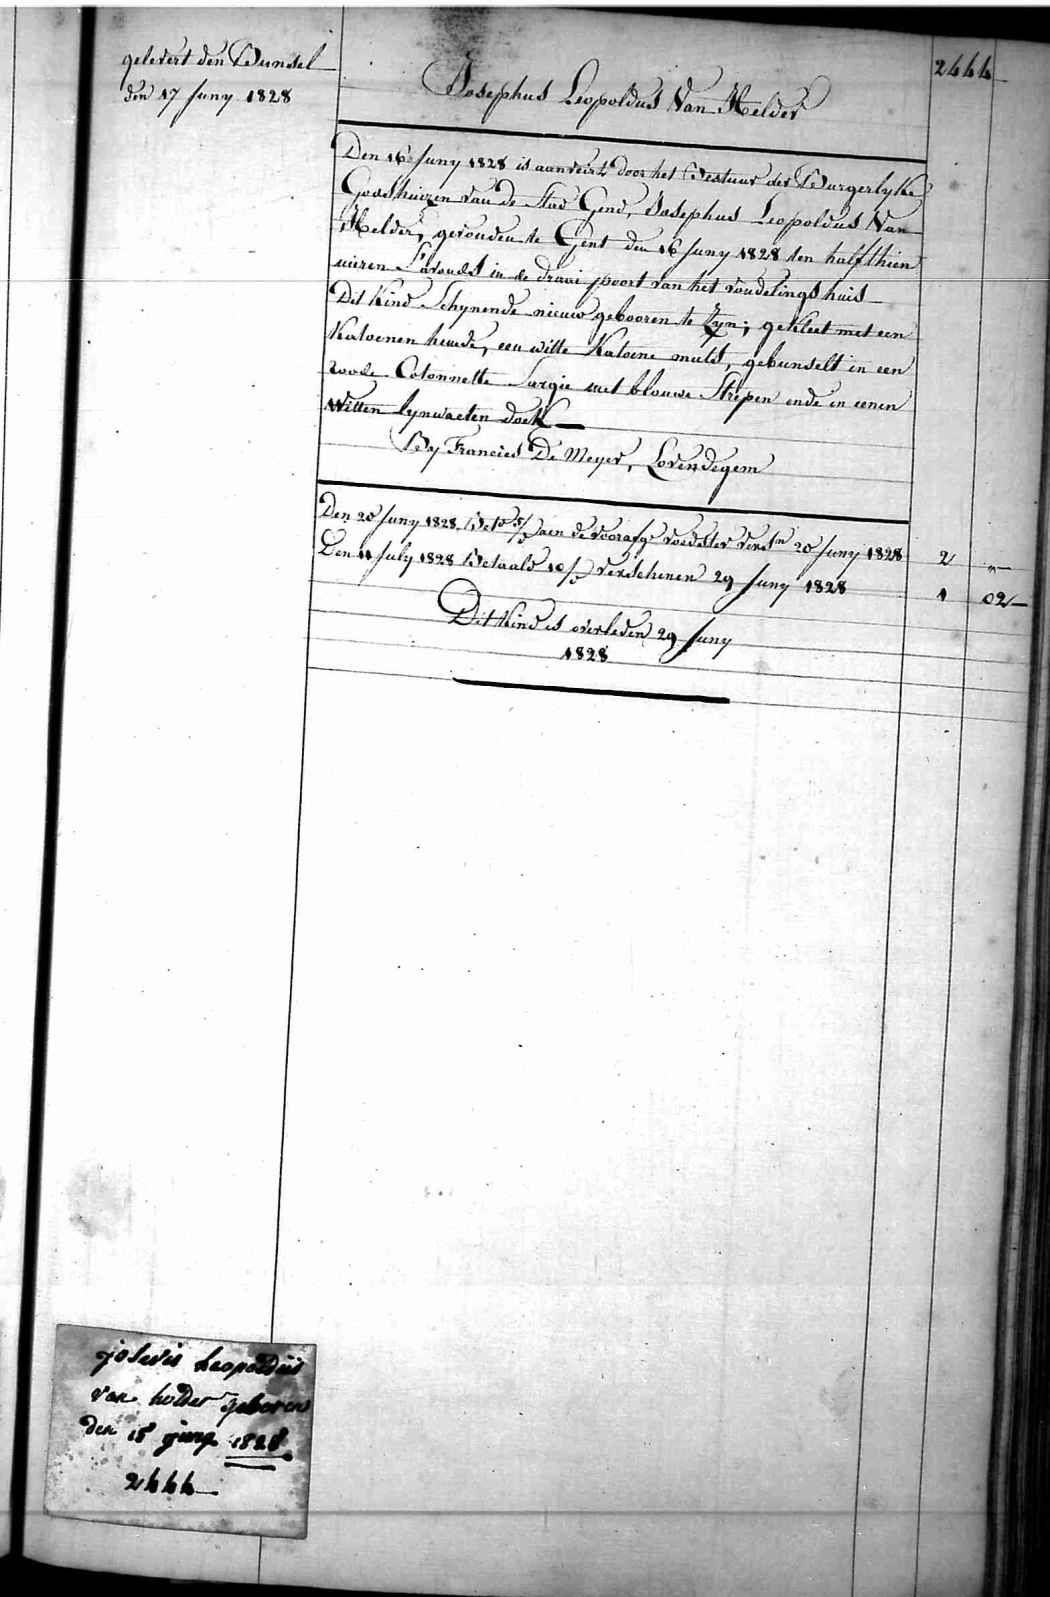 gelevert den Bunsel
den 17 Juny 1828
2444
Josephus Leopoldus Van Helder
Den 16 Juny 1828 is aanveirt door het Bestuur der Burgerlyke
Godshuizen van de Stad Gend, Josephus Leopoldus Van
Helder, gevonden te Gent den 16 Juny 1828 ten half thien
uieren s'avonds in de draai poort van het vondelings huis
Dit Kind Schynende nieuw gebooren te Zyn; gekleet met een
Katoenen hemde, een witte Katoene muts, gebunselt in een
roode Cotonnette Sargie met blouwe Strepen ende in eenen
Witten lynwaeten doek
By Francies De Meyer, Lovendegem
Den 20 Juny 1828 Bet. aen de voorafg. voedster 20 Juny 1828 2 "
Den 11 July 1828 Betaald 10/ Verschenen 29 Juny 1828 1 02
Dit Kind is overleden 29 Juny
1828
josevis Leopoldus
van helder geboren
den 15 juny 1828
2444